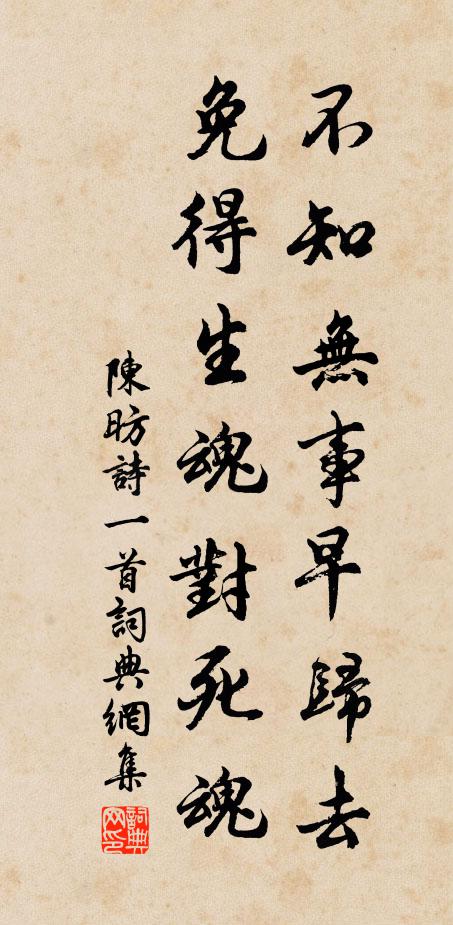 不知無事早歸去
免得生魂對死魂
陳昉詩一首詞典網集
詞典网印